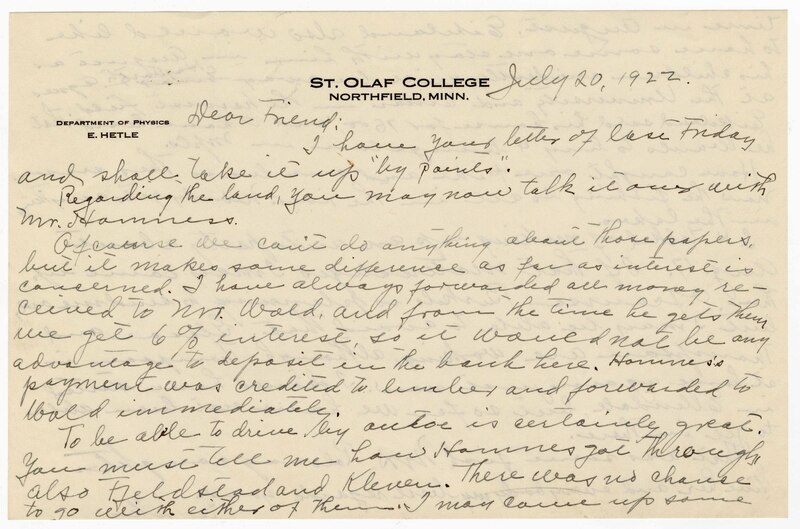 ST. OLAF COLLEGE
NORTHFIELD, MINN.
July 20, 1922.
DEPARTMENT OF PHYSICS
E. HETLE
Dear Friend:
I have your letter of last Friday
and shall take it up "by points".
Regarding the land, you may now talk it over with
Mr. Homness.
Of course we can't do anything about those papers,
but it makes some difference as far as interest is
concerned. I have always forwarded all money re-
ceived to Mr. Wold, and from the time he gets them
we get 6% interest, so it would not be any
advantage to deposit in the bank here. Homnes's
payment was credited to lumber and forwarded to
Wold immediately.
To be able to drive by autoe is certainly great.
You must tell me how Homnes got through,
also Fjeldstad and Kleven. There was no chance
to go with either of them. I may come up some